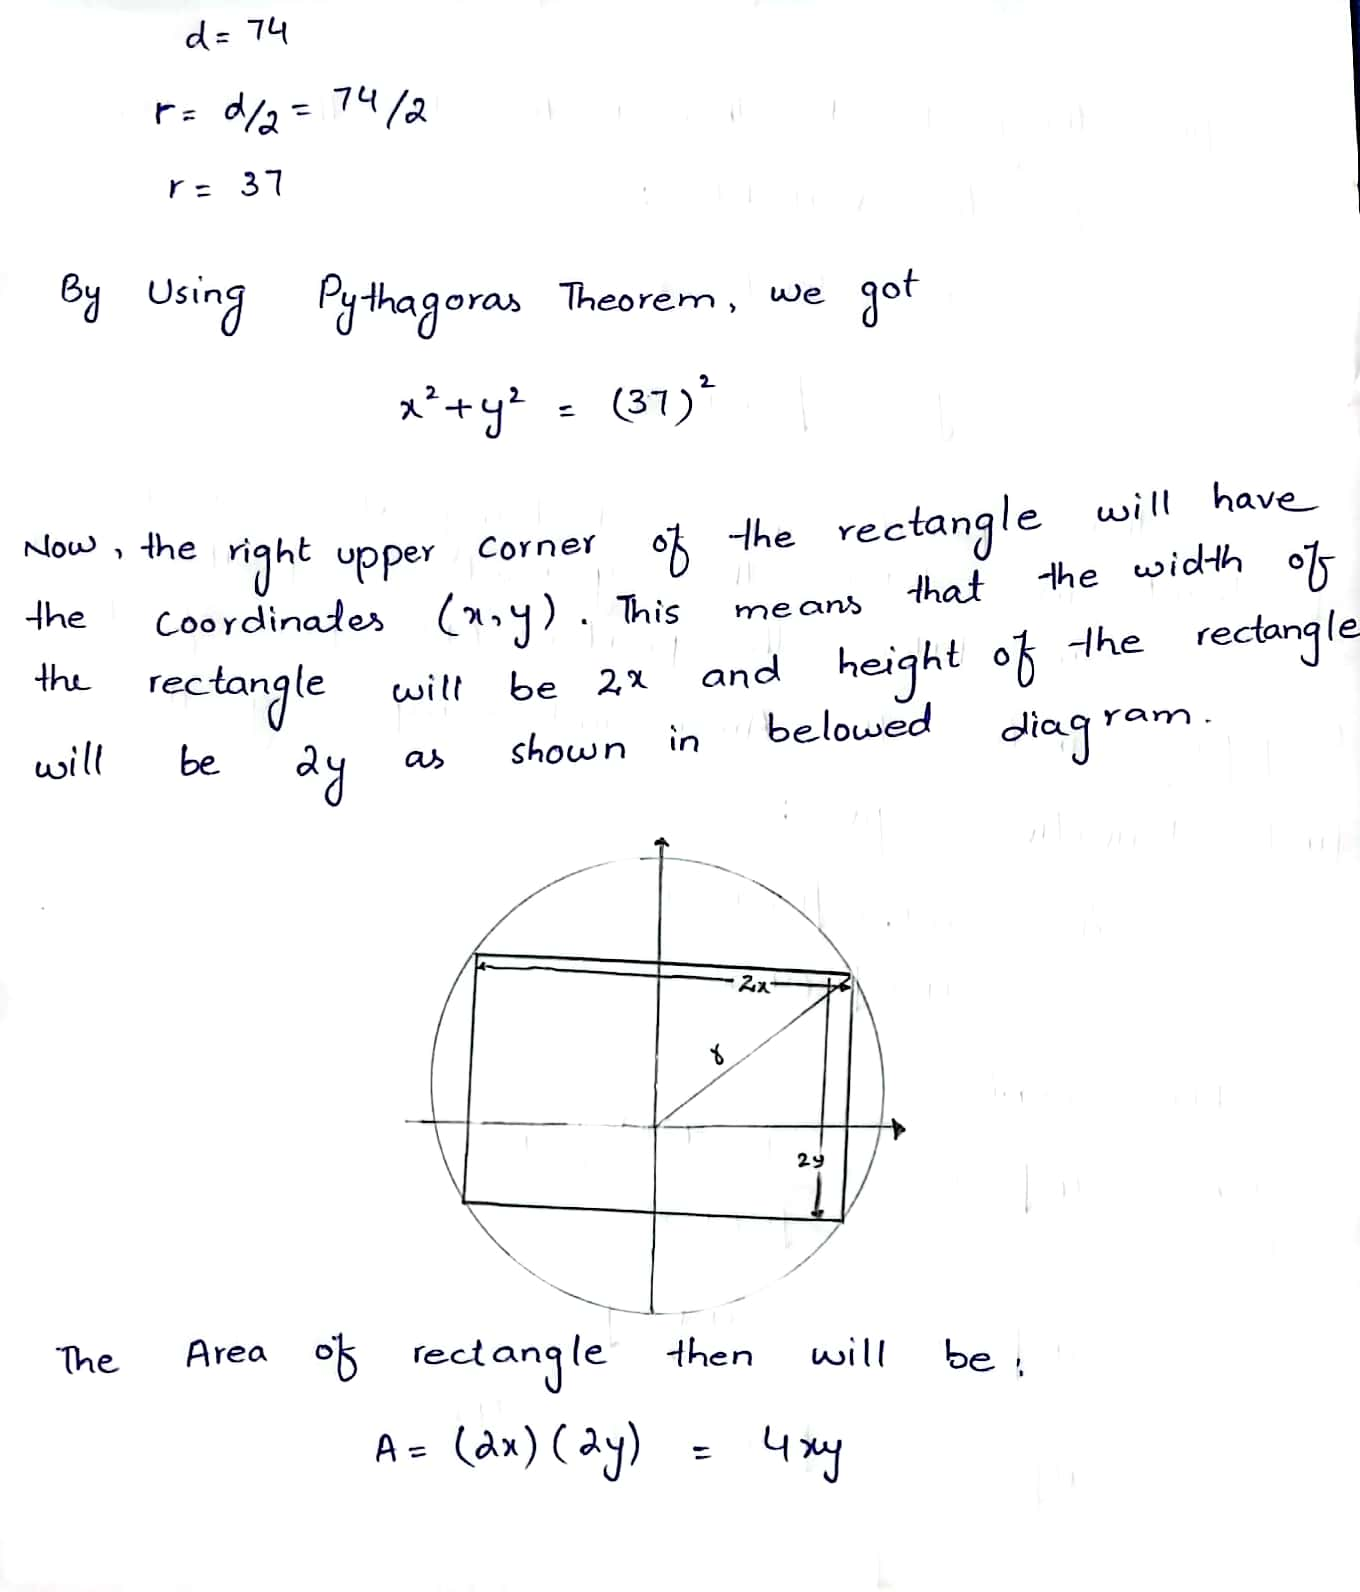 d = 74
r = d/2 = 74/2
r = 37
By Using Pythagoras Theorem, we got
x² + y² = (37)²
Now, the right upper corner of the rectangle will have
the coordinates (x,y). This means that the width of
the rectangle will be 2x and height of the rectangle
will be 2y as shown in belowed diagram.
2x
r
2y
The Area of rectangle then will be:
A = (2x)(2y) = 4xy